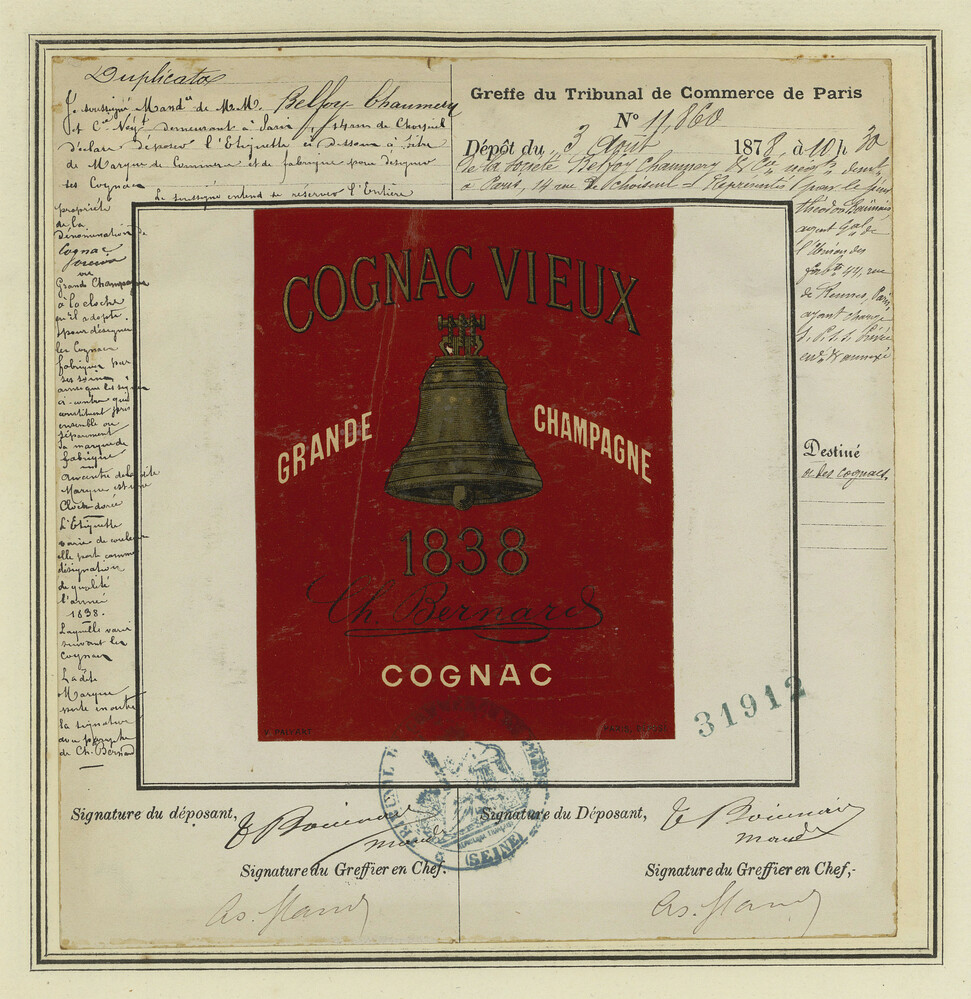 Duplicata
Je soussigné Mand.re de M.M. Belfoy Chaumery
et Cie Négts demeurant à Paris, 14 rue de Choiseul
déclare déposer l'Etiquette ci-dessous à titre
de Marque de Commerce et de fabrique pour désigner
ses Cognacs
Le soussigné entend se réserver l'Entière
propriété
de la
Dénomination de
Cognac
ou
Grande Champagne
à la cloche
qu'il adopte
pour désigner
les Cognacs
fabriqués par
ses soins
ainsi que les signes
ci-contre qui
constituent pris
ensemble ou
séparément
sa marque de
fabrique
Au centre de ladite
Marque est une
Cloche dorée
L'Etiquette
varie de couleur
elle porte comme
désignation
de qualité
l'année
1838.
Laquelle varie
suivant les
Cognacs
Ladite
Marque
porte en outre
la signature
avec paraphe
de Ch. Bernard
Greffe du Tribunal de Commerce de Paris
N° 11,860
Dépôt du 3 Août 1878 à 10 h 30
de la Société Belfoy Chaumery & Cie négts demt
à Paris, 14 rue de Choiseul Représentée par le sieur
agent Gal de
l'Union des
fabts 44, rue
de Rennes, Paris,
ayant charge
Destiné
à des cognacs.
COGNAC VIEUX
GRANDE CHAMPAGNE
1838
Ch. Bernard
COGNAC
31912
TRIBUNAL DE COMMERCE
(SEINE)
Signature du déposant,
Signature du Greffier en Chef.
Signature du Déposant,
Signature du Greffier en Chef,